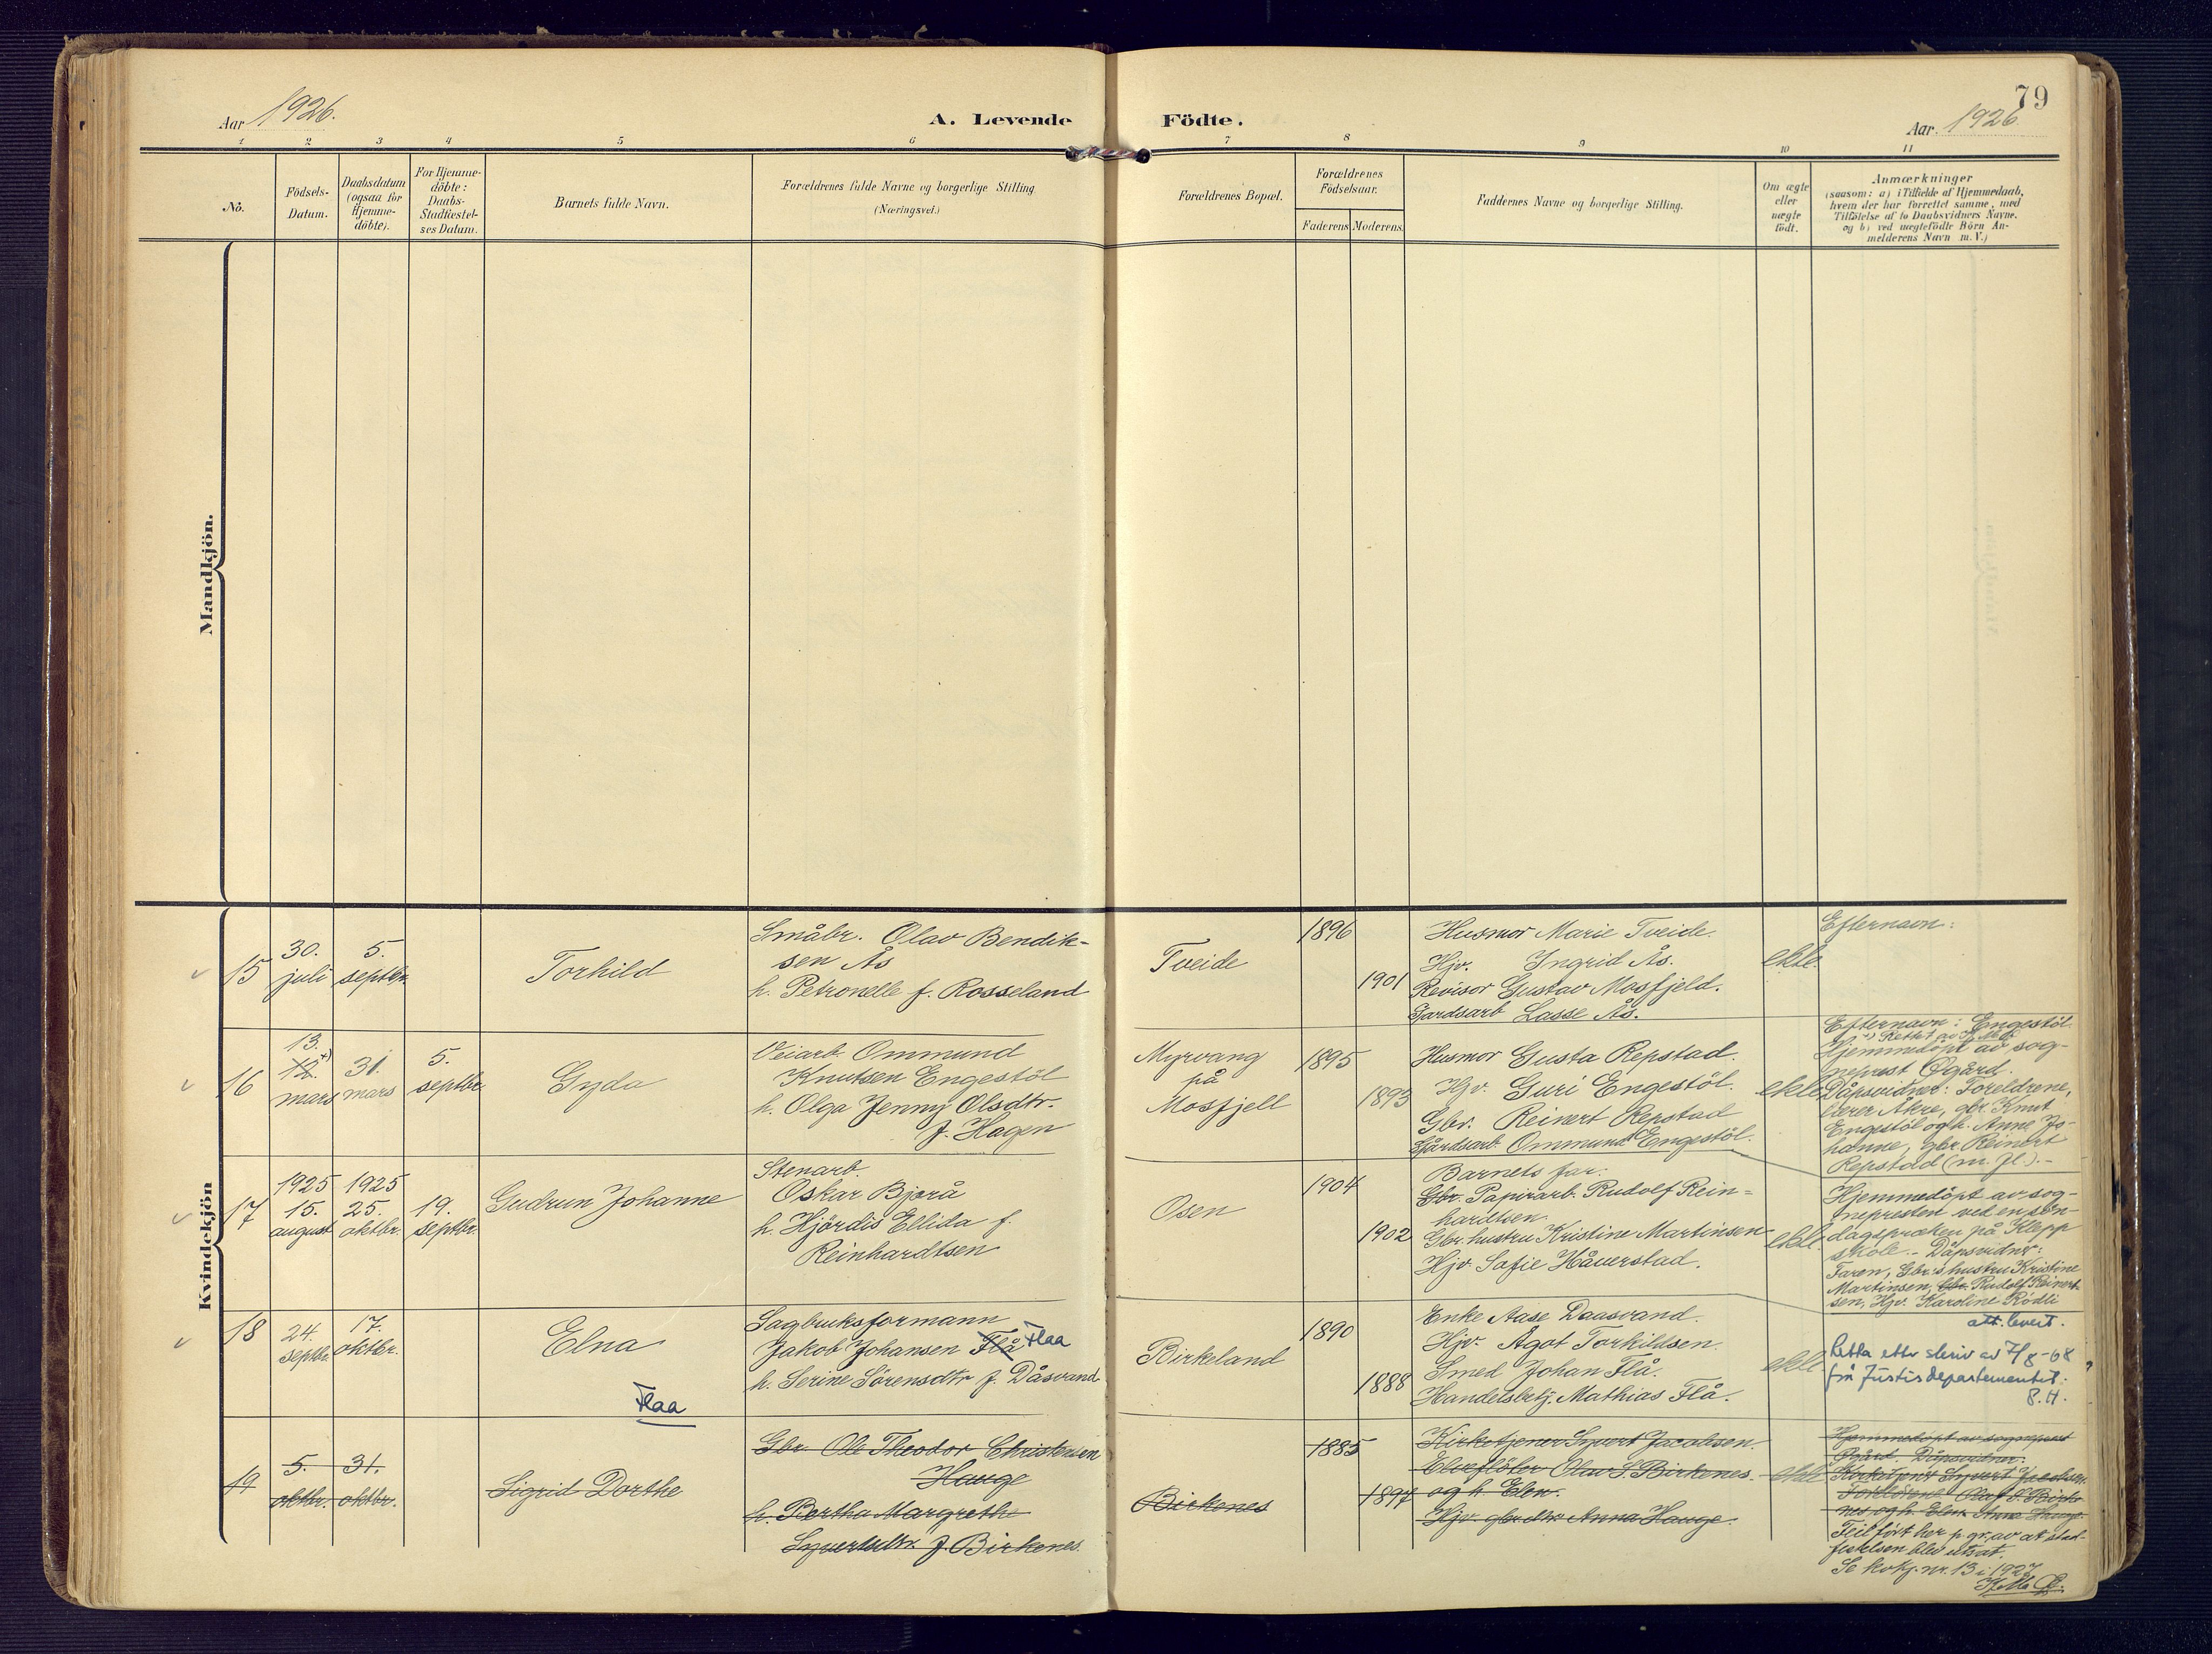 79
Aar 1926.
A. Levende Födte.
Aar. 1926
1 2 3 4 5 6 7 8 9 10 11
No.
Födsels-
Datum.
Daabsdatum
(ogsaa for
Hjemme-
döbte).
For Hjemme-
döbte:
Daabs-
Stadfæstel-
ses Datum.
Barnets fulde Navn.
Forældrenes fulde Navne og borgerlige Stilling
(Næringsvei.)
Forældrenes Bopæl.
Forældrenes
Födselsaar.
Faderens Moderens.
Faddernes Navne og borgerlige Stilling.
Om ægte
eller
uægte
födt.
Anmærkninger
(saasom: a) i Tilfælde af Hjemmedaab,
hvem der har forrettet samme, med
Tilföielse af to Daabsvidners Navne.
og b) ved uægtefödte Börn An-
melderens Navn m. V.)
Mandkjön.
Kvindekjön
15
30.
juli
5.
septbr.
Torhild
Småbr. Olav Bendik-
sen Ås
h. Petronelle f. Rosseland
Tveide
1896
1901
Husmor Marie Tveide.
Hjv. Ingrid Ås.
Revisor Gustav Mosfjeld.
Gardsarb Lasse Ås.
ekte
Efternavn:
16
13.
12. +)
mars
31.
mars
5.
septbr
Gyda
Veiarb. Ommund
Knutsen Engestöl
h. Olga Jenny Olsdtr.
f. Hagen
Myrvang
på
Mosfjell
1895
1893
Husmor Gusta Repstad.
Hjv. Guri Engestöl.
Gbr. Reinert Repstad
Gårdsarb. Ommund K Engestöl.
ekte
Efternavn: Engestöl.
+) Rettet av
Hjemmedöpt av sog-
neprest Øgård.
Dåpsvidner: Foreldrene,
lærer Åkre, gbr. Knut
Engestöl og h. Anne Jo-
hanne, gbr. Reinert
Repstad (m. fl.). -
17
1925
15.
august
1925
25.
oktbr.
19.
septbr.
Gudrun Johanne
Stenarb.
Oskar Bjorå
h. Hjördis Ellida f.
Reinhardtsen
Osen
1904
1902
Barnets far.
Gbr. Papirarb. Rudolf Rein=
hardtsen.
Gbr. hustru Kristine Martinsen
Hjv. Sofie Håverstad.
ekte
Hjemmedöpt av sog-
nepresten ved en sön-
dagspreken på Klepp
skole. - Dåpsvidner:
Faren, Gbr's hustru Kristine
Martinsen, Gbr. Rudolf Reinert-
sen, Hjv. Karoline Rödli
18
24.
septbr.
17.
oktbr.
Elna
Flaa
Sagbruksformann
Jakob Johansen Flå Flaa
h. Serine Sörensdtr f. Dåsvand
Birkeland
1890
1888
Enke Aase Daasvand.
Hjv. Ågot Torkildsen.
Smed Johan Flå.
Handelsbetj. Mathias Flå.
ekte
att. levert.
Retta ettr skriv av 7/8-68
frå Justisdepartementet.
B.H.
19
5.
oktbr.
31.
oktbr.
Sigrid Dorthe
Gbr. Ole Theodor Christensen
Hauge
h. Bertha Margrethe
Syvertsdtr. f. Birkenes.
Birkenes
1885
1897
Kirketjener Syvert Jacobsen.
Elveflöter Olav S. Birkenes.
og h. Elen.
Hjv. gbr.dtr. Anna Hauge.
ekte
Hjemmedöpt av sogneprest
Øgård. Dåpsvidner:
Kirketjener Syvert Jacobsen
Foreldrene Olaf S. Birke-
nes og h. Elen. Anna Hauge.
Feil fört her p. gr. av at stad-
festelsen blev utsat.
Se kvkj. nr. 13 i 1927